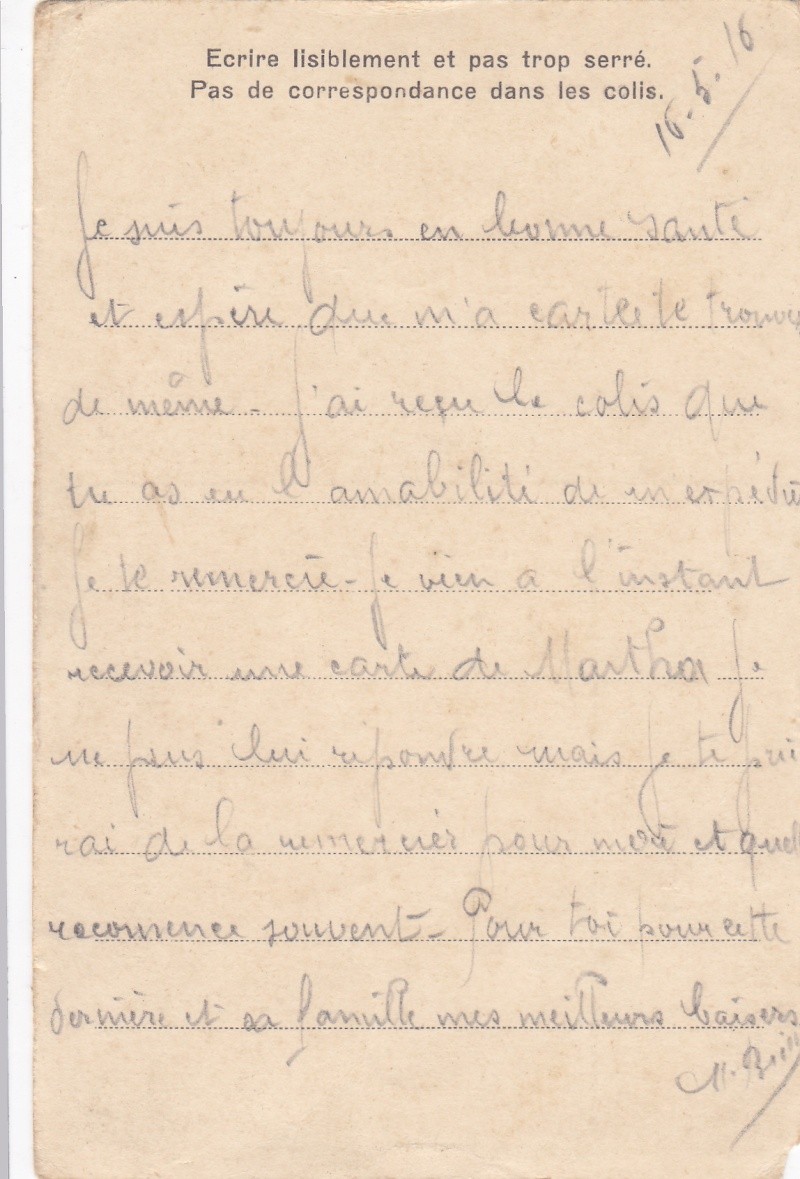 Ecrire lisiblement et pas trop serré.
Pas de correspondance dans les colis.
16.5.16
Je suis toujours en bonne santé
et espère que m'a carte te trouve
de même - J'ai reçu le colis que
tu as eu l'amabilité de m'expédié
Je te remercie - Je vien a l'instant
recevoir une carte de Martha Je
ne puis lui répondre mais Je te prie
rai de la remercier pour moi et quel
recomence souvent - Pour toi pour cette
dernière et sa famille mes meilleurs baisers
M.